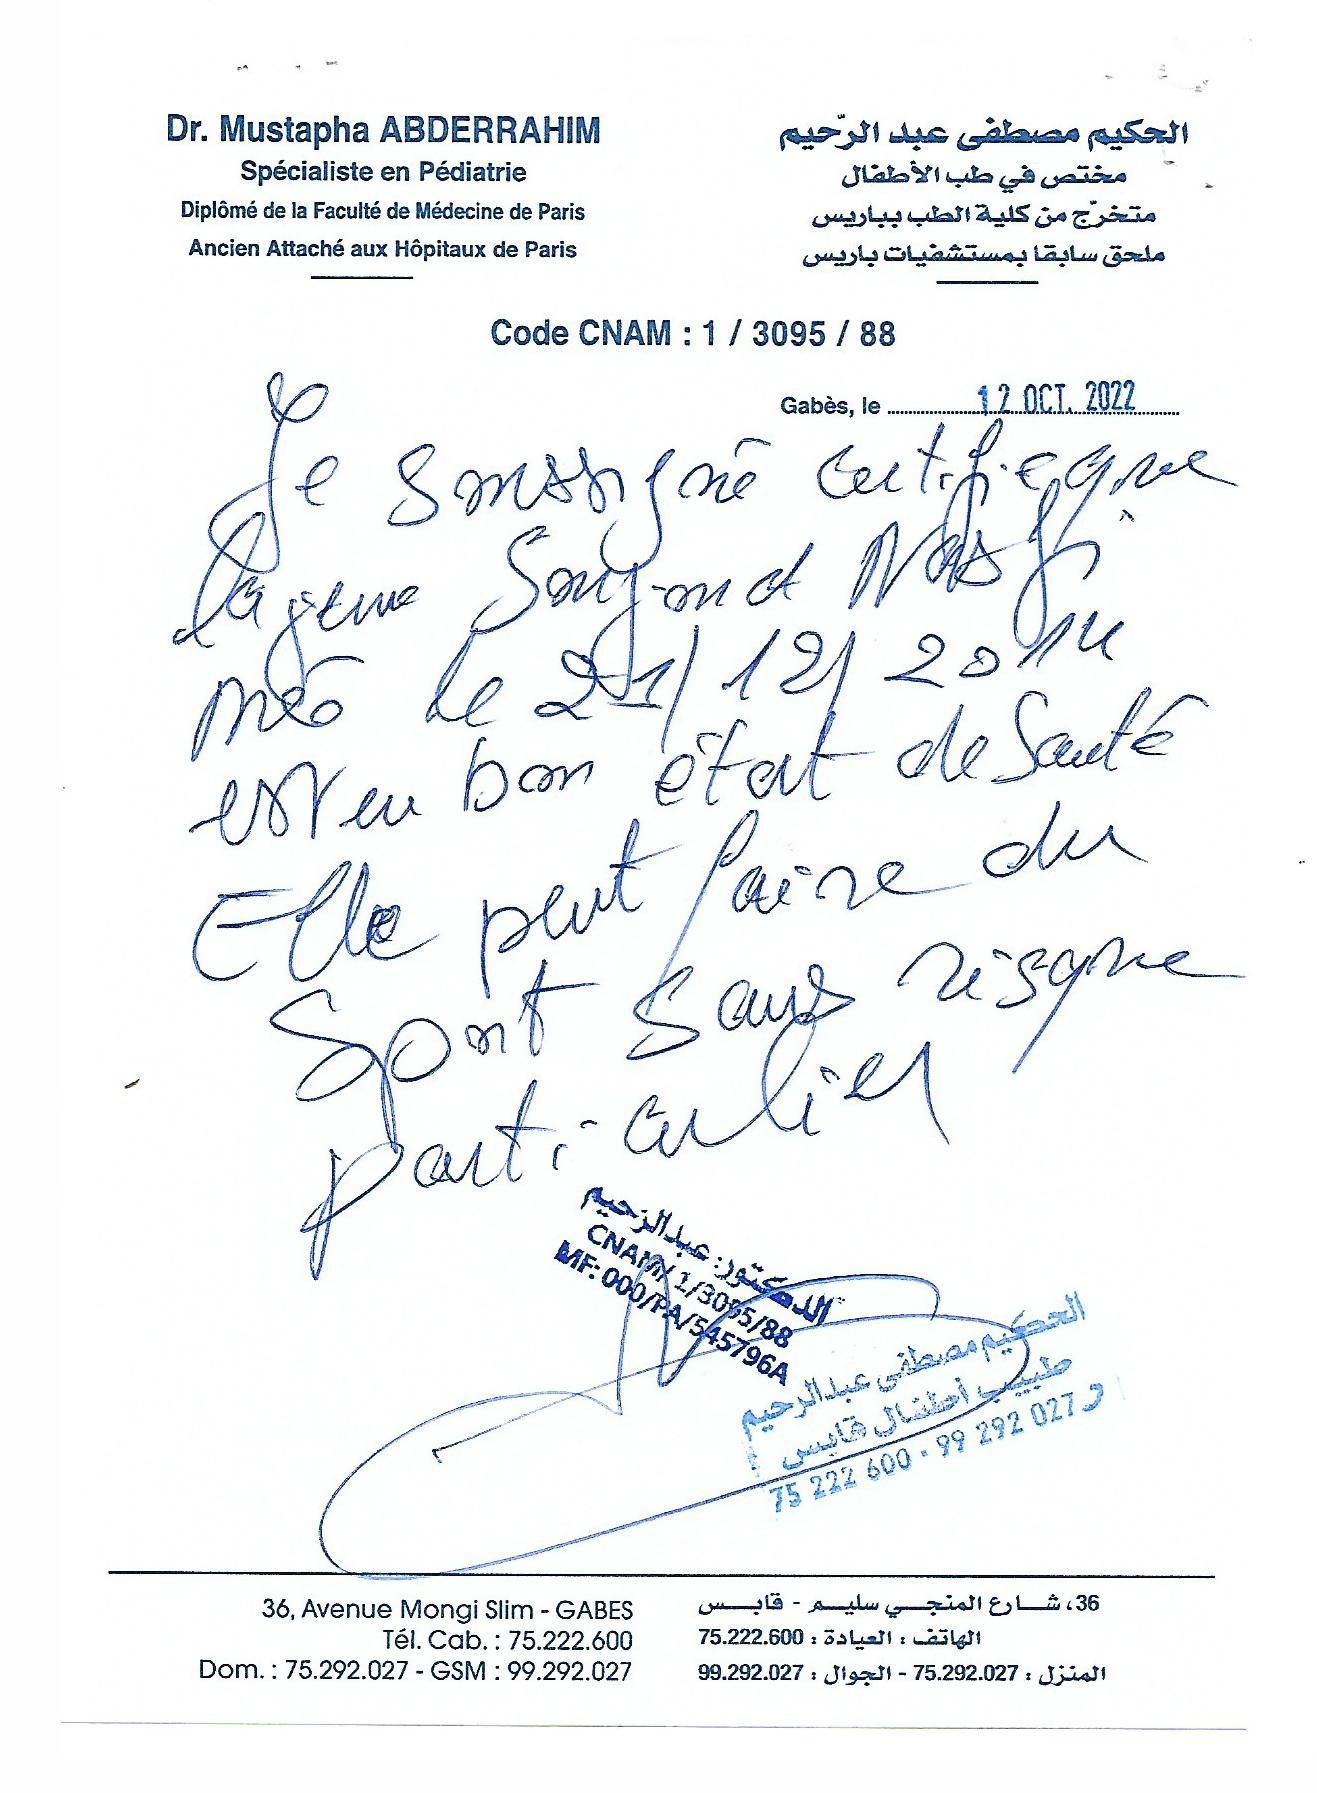 Dr. Mustapha ABDERRAHIM
Spécialiste en Pédiatrie
Diplômé de la Faculté de Médecine de Paris
Ancien Attaché aux Hôpitaux de Paris
الحكيم مصطفى عبد الرّحيم
مختص في طب الأطفال
متخرّج من كلية الطب بباريس
ملحق سابقا بمستشفيات باريس
Code CNAM : 1 / 3095 / 88
Gabès, le 12 OCT. 2022
Je soussigné certifie que
la jeune
née le 21/12/20
est en bon état de santé
Elle peut faire du
sport sans risque
particulier
الدكتور: عبدالرحيم
CNAM: 1/3095/88
MF: 000/PA/545796A
الحكيم مصطفى عبدالرحيم
طبيب أطفال قابس
75 222 600 - 99 292 027
36, Avenue Mongi Slim - GABES
Tél. Cab. : 75.222.600
Dom. : 75.292.027 - GSM : 99.292.027
36، شارع المنجي سليم - قابس
الهاتف : العيادة : 75.222.600
المنزل : 75.292.027 - الجوال : 99.292.027